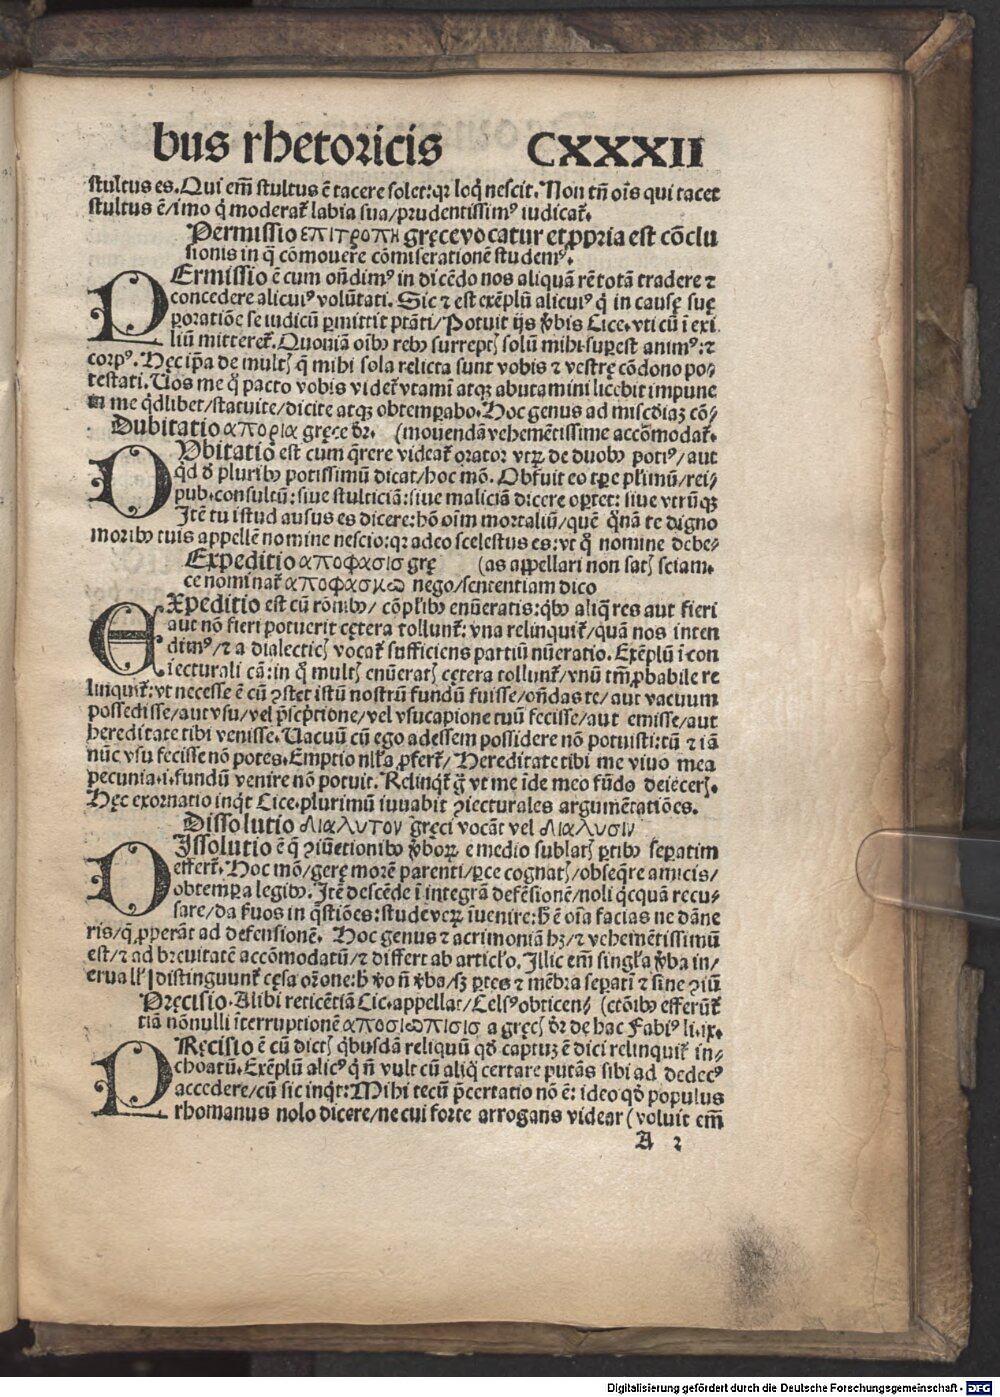 bus rhetoricis CXXXII
stultus es. Qui em̄ stultus ē tacere solet: qꝛ loq̄ nescit. Non tn̄ oīs qui tacet
stultus ē/imo q̇ moderat᷑ labia sua/prudentissimꝰ iudicat᷑.
Permissio επιτροπη gręce vocatur et ꝓpria est cōclu
sionis in q̄ cōmouere cōmiserationē studemꝰ.
PErmissio ē cum on̄dimꝰ in dicēdo nos aliquā rē totā tradere ⁊
concedere alicuiꝰ volūtati. Sic ⁊ est exēplū alicuiꝰ q̇ in causę suę
ꝑoratiōe se iudicū ꝑmittit ptāti/Potuit ijs v̓bis Cice. vti cū ī exi
liū mitteret᷑. Quoniā oībꝰ rebꝰ surreptꝭ solū mihi suꝑest animꝰ: ⁊
corpꝰ. Hęc ip̄a de multꝭ q̄ mihi sola relicta sunt vobis ⁊ vestrę cōdono po-
testati. Uos me q̊ pacto vobis videt᷑ vtamī atqꝫ abutamini licebit impune
in me qd̓libet/statuite/dicite atqꝫ obtemꝑabo. Hoc genus ad miscd̓iaꝫ cō-
Dubitatio απορια gręce dr̄. (mouendā vehemētissime accōmodat᷑.
DUbitatio est cum q̄rere videat᷑ orator vtꝝ de duobꝰ potiꝰ/aut
qd̓ d̓ pluribꝰ potissimū dicat/hoc mō. Obfuit eo tꝑe pl̓imū/rei-
pub. consultū: siue stulticiā: siue maliciā dicere oꝑtet: siue vtrūqꝫ
Itē tu istud ausus es dicere: hō oīm mortaliū/quē q̇nā te digno
moribꝰ tuis appellē nomine nescio: qꝛ adeo scelestus es: vt q̊ nomine debe-
Expeditio αποφασις grę (as appellari non satꝭ sciam.
ce nominat᷑ αποφασκω nego/sententiam dico
EXpeditio est cū rōnibꝰ/ cōpl̓ibꝰ enūeratis: q̇bꝰ aliq̄ res aut fieri
aut nō fieri potuerit cętera tollunt᷑: vna relinquit᷑/quā nos inten
dimꝰ/⁊ a dialecticꝭ vocat᷑ sufficiens partiū nūeratio. Exēplū ī con
iecturali cā: in q̄ multꝭ enūeratꝭ cętera tollunt᷑/vnū tm̄ ꝓbabile re
linquit᷑: vt necesse ē cū ꝯstet istū nostrū fundū fuisse/on̄das te/aut vacuum
possedisse/aut vsu/vel p̄scp̄tione/vel vsucapione tuū fecisse/aut emisse/aut
hereditate tibi venisse. Uacuū cū ego adessem possidere nō potuisti: tū ⁊ iā
nūc vsu fecisse nō potes. Emptio nl̓la ꝓfert᷑/Hereditate tibi me viuo mea
pecunia. i. fundū venire nō potuit. Relinq̇t᷑ g̊ vt me īde meo fūdo deiecerꝭ.
Hęc exornatio inq̇t Cice. plurimū iuuabit ꝯiecturales argumētatiōes.
Dissolutio διαλυτον gręci vocāt vel διαλυσιν
DIssolutio ē q̄ ꝯiūctionibꝰ v̓boꝝ e medio sublatꝭ ꝑtibꝰ seꝑatim
effert᷑. Hoc mō/gere morē parenti/ꝑce cognatꝭ/obseq̄re amicis/
obtemꝑa legibꝰ. Itē descēde ī integrā defēsionē/noli q̇cquā recu-
sare/da ẜuos in q̄stiōes: stude veꝝ īuenire: h̄ ē oīa facias ne dāne
ris/q̄ ꝓꝑant ad defensionē. Hoc genus ⁊ acrimoniā hꝫ/⁊ vehemētissimū
est/⁊ ad breuitatē accōmodatū/⁊ differt ab articl̓o. Illic em̄ singl̓a v̓ba in/
distinguunt᷑ cęsa or̄one: h̓ v̊o n̄ v̓ba/sꝫ ꝑtes ⁊ mēbra seꝑatī ⁊ sine ꝯiū
Pręcisio. Alibi reticētiā Cic. appellat/Celsꝰ obticen (ctōibꝰ efferūt᷑
tiā nōnulli īterruptionē αποσιωπισις a gręcꝭ dr̄ de hac Fabiꝰ li. ix.
PRęcisio ē cū dictꝭ q̇busdā reliquū qd̓ captuꝫ ē dici relinquit᷑ in-
choatū. Exēplū alicꝰ q̇ n̄ vult cū aliq̊ certare putās sibi ad dedecꝰ
accedere/cū sic inq̇t: Mihi tecū p̄certatio nō ē: ideo qd̓ populus
rhomanus nolo dicere/ne cui forte arrogans videar (voluit em̄
A 2
Digitalisierung gefördert durch die Deutsche Forschungsgemeinschaft - DFG